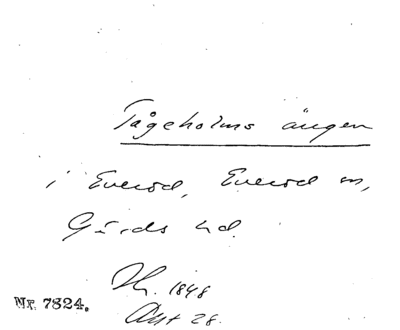 Tågeholms ängen
i Everöd, Everöd sn,
Gärds hd.
Hr. 1848
Akt 28.
Nr. 7824.